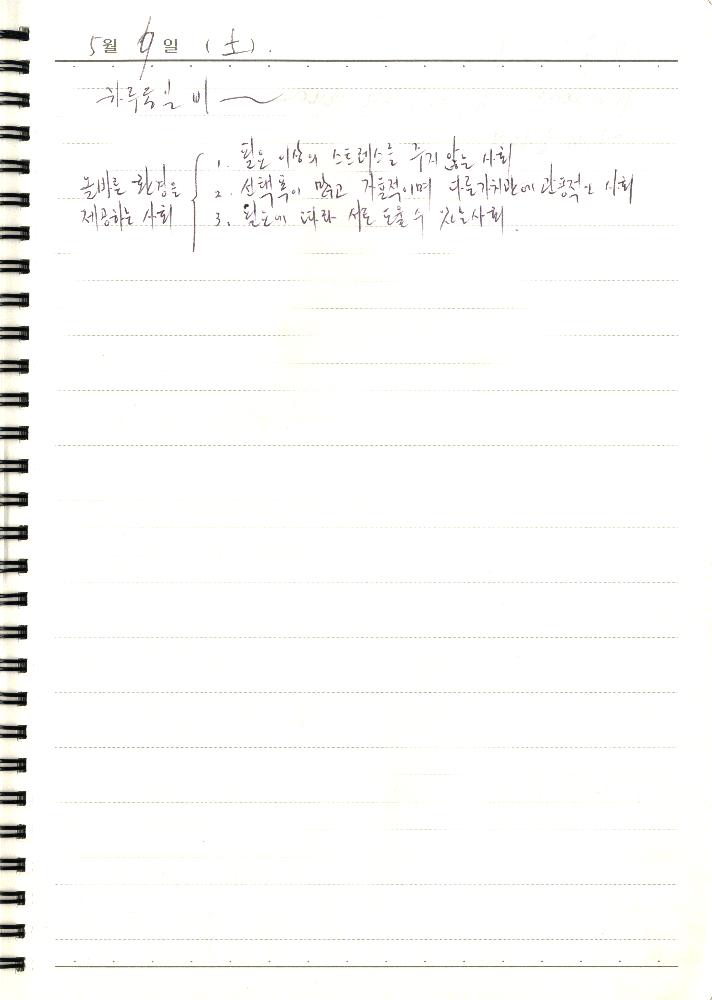 5월 9일 (土).
하루종일 비~
올바른 환경을
제공하는 사회
1. 필요 이상의 스트레스를 주지 않는 사회
2. 선택폭이 많고 가표적이며 다른가치관에 관용적인 사회
3. 필요에 따라 서로 도울 수 있는 사회.